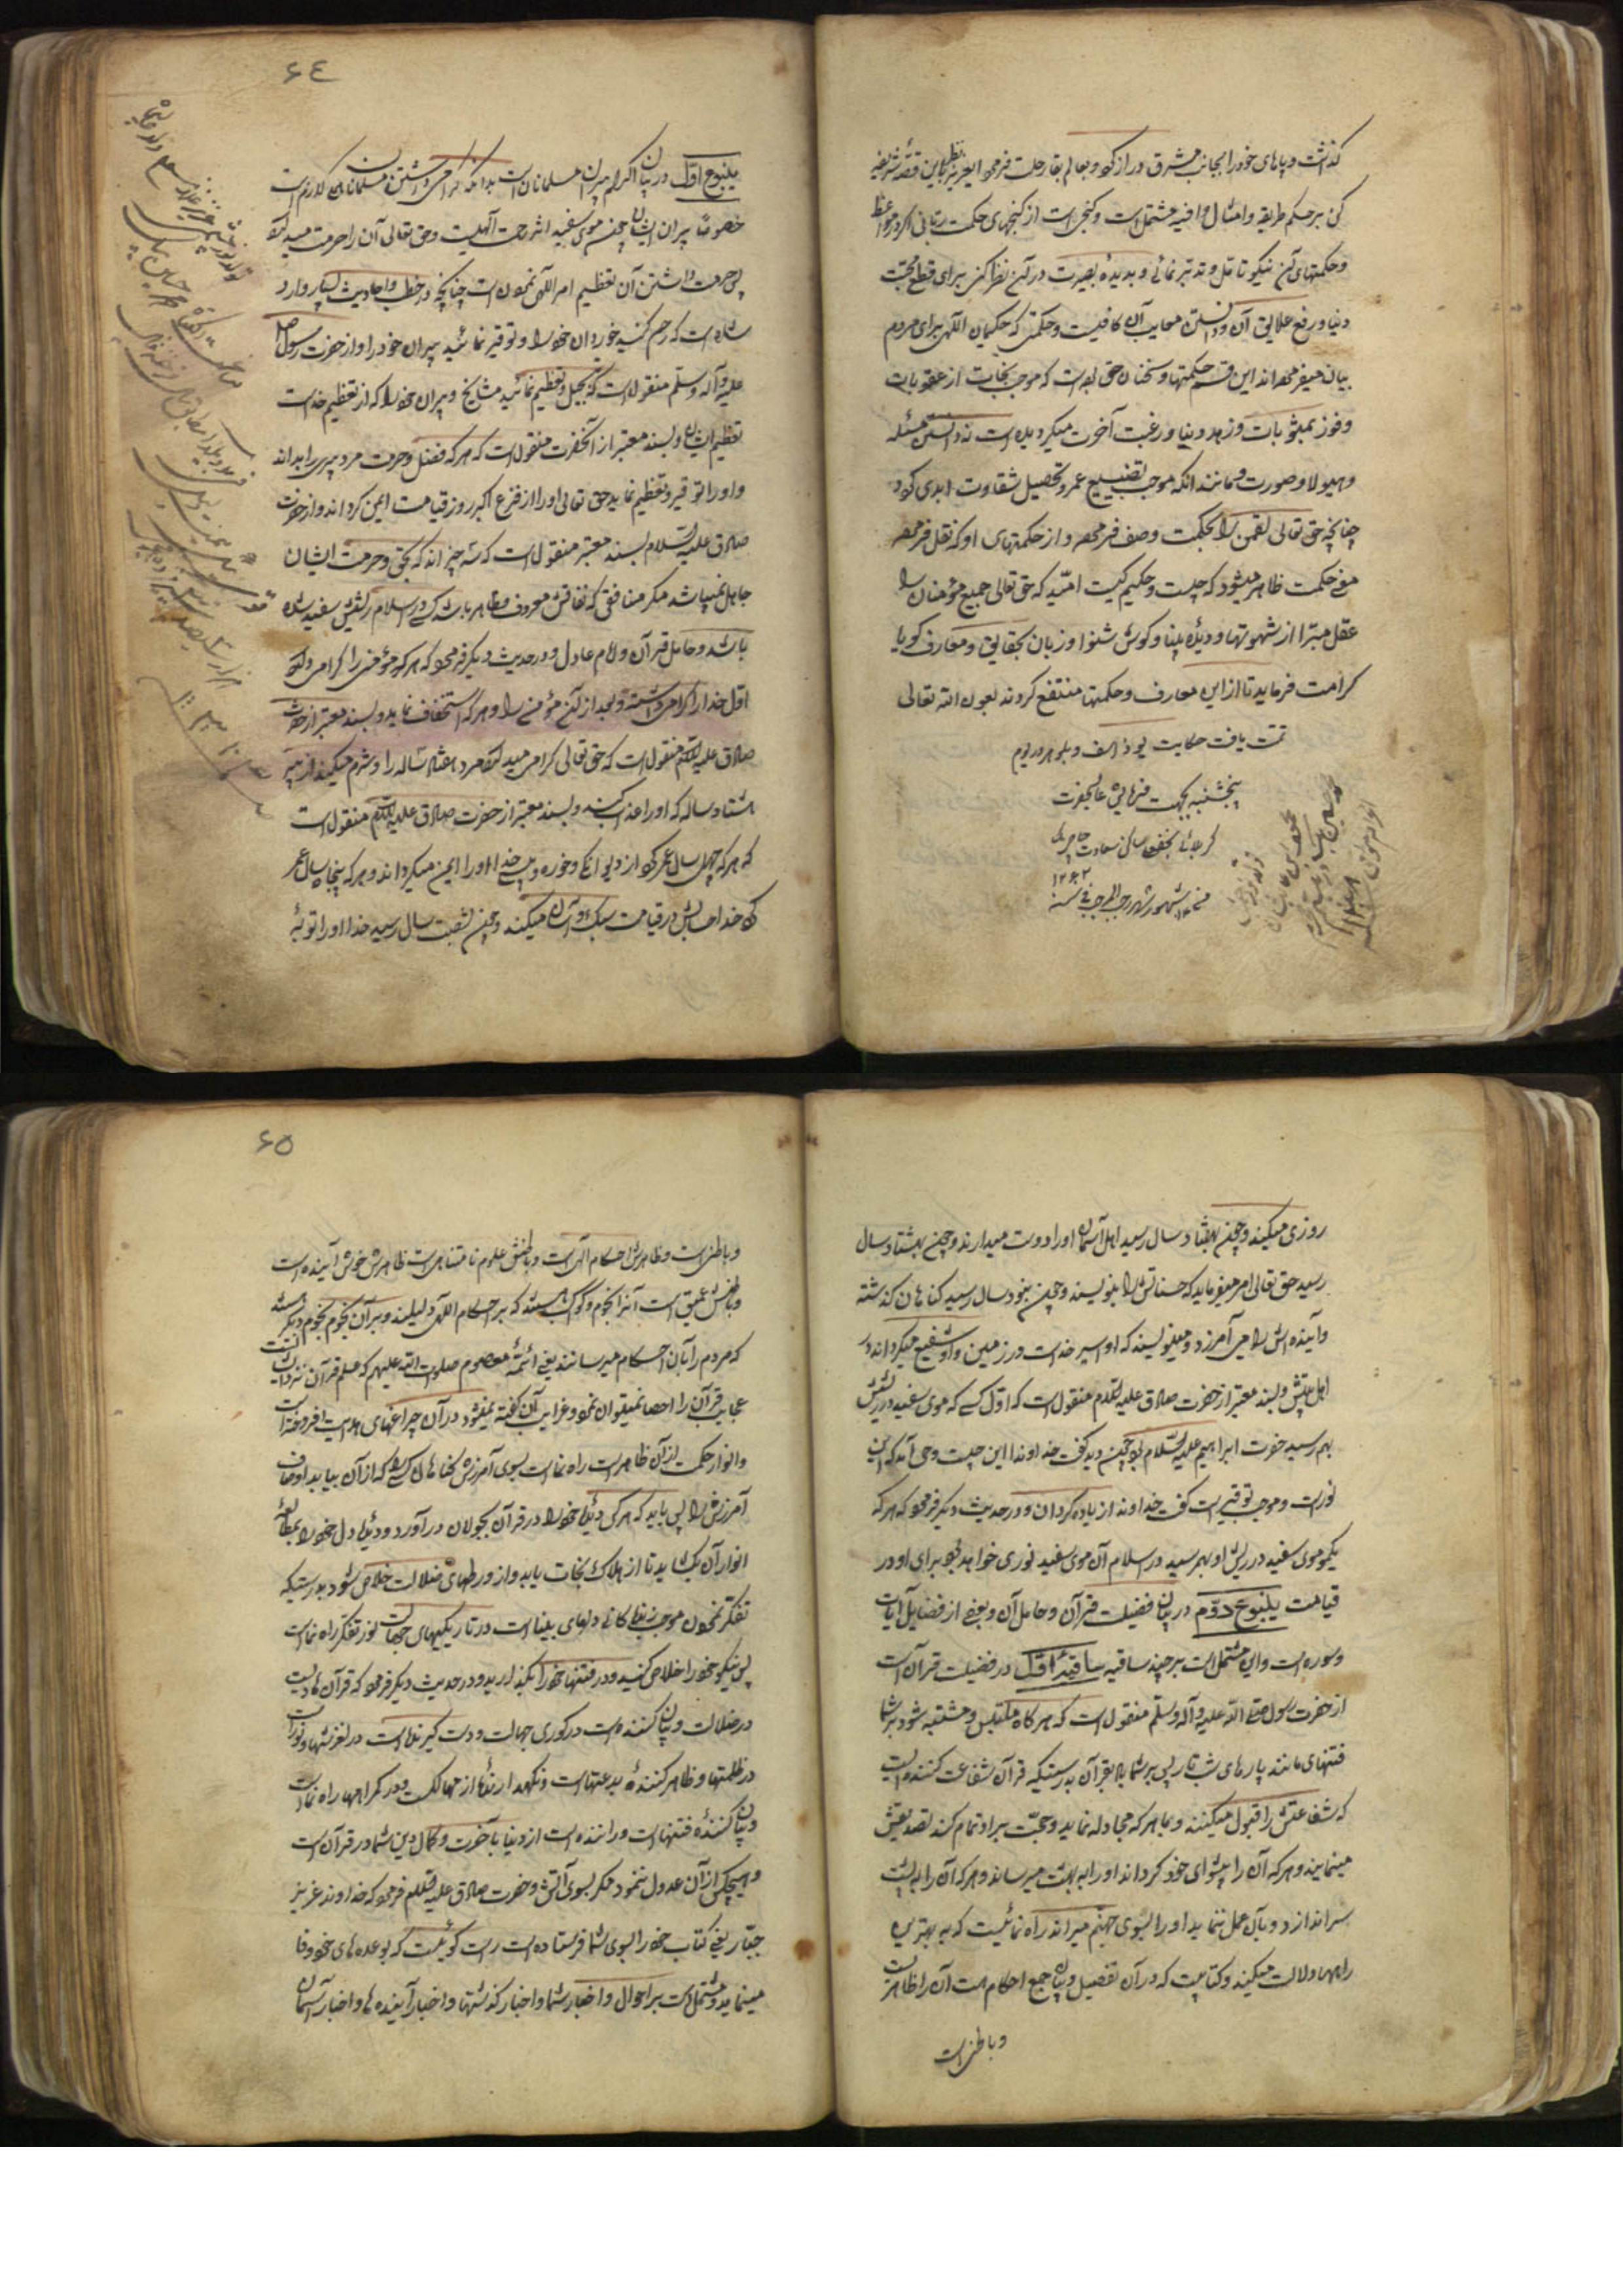 گذاشت و پاهای خود را بجانب مشرق دراز کرد و بعالم بقا رحلت فرمود ای عزیز نظر باین قصهٔ شریفه
کن بر حکم طریقه و امثال وافیه مشتمل است و گنجی است از گنجهای حکمت ربانی اگر در مواعظ
و حکمتهای آن نیکو تأمل و تدبر نمائی و بدیدهٔ بصیرت در آن نظر کنی برای قطع محبت
دنیا و رفع علایق آن و دانستن معایب آن کافیست و حکمتی که حکیمان الهی برای مردم
بیان میفرموده‌اند این قسم حکمتها و سخنان حق بوده است که موجب نجات از عقوبات
و فوز بمثوبات و زهد دنیا و رغبت آخرت میگردیده است نه دانستن مسئله
و هیولا و صورت و مانند آنکه موجب تضییع عمر و تحصیل شقاوت ابدی گردد
چنانچه حق تعالی لقمن را بحکمت وصف فرموده و از حکمتهای او که نقل فرموده
معنی حکمت ظاهر میشود که چیست و حکیم کیست امید که حق تعالی جمیع مؤمنان را
عقل مبرا از شهوتها و دیدهٔ بینا و گوش شنوا و زبان بحقایق و معارف گویا
کرامت فرماید تا از این معارف و حکمتها منتفع گردند بعون الله تعالی
تمت یافت حکایت یوذاسف و بلوهر در یوم
پنجشنبه بجهت فرمایش عالیحضرت
کربلائی نجفقلی ساکن سعادت
شهر رجب المرجب فی سنه
۱۲۶۲
۶٤
ینبوع اول در بیان اکرام پیران مسلمانان است بدانکه گرامی داشتن مسلمانان لازم است
خصوصا پیران ایشان چون موی سفید اثر رحمت الهیست و حق تعالی آن را حرمت میدارد
پس حرمت داشتن آن تعظیم امر الهی نمودن است چنانچه در خطب و احادیث بسیار وارد
شده است که رحم کنید خوردان خود را و توقیر نمائید پیران خود را و از حضرت رسول صلی الله
علیه و آله و سلم منقول است که تبجیل و تعظیم نمائید مشایخ و پیران خود را که از تعظیم خداست
تعظیم ایشان و بسند معتبر از آنحضرت منقول است که هر که فضل و حرمت مرد پیری را بداند
و او را توقیر و تعظیم نماید حق تعالی او را از فزع اکبر روز قیامت ایمن گرداند و از حضرت
صادق علیه السلام بسند معتبر منقول است که سه چیزاند که بحق و حرمت ایشان
جاهل نمیباشد مگر منافقی که نفاقش معروف و ظاهر باشد کسی که در اسلام ریشش سفید شده
باشد و حامل قرآن و امام عادل و در حدیث دیگر فرمود که هر که مؤمنی را گرامی دارد
اول خدا را گرامی داشته و بعد از آن مؤمن را و هر که استخفاف نماید و بسند معتبر از حضرت
صادق علیه السلام منقول است که حق تعالی گرامی میدارد مرد هفتاد ساله را و شرم میکند از پیر
هشتاد ساله که او را عذاب کند و بسند معتبر از حضرت صادق علیه السلام منقول است
که هر که چهل سال عمر کرد از دیوانگی و خوره و پیسی خدا او را ایمن میگرداند و هر که پنجاه سال عمر
کرد خدا حسابش در قیامت سبک و آسان میکند و چون بشصت سال رسید خدا او را توبهٔ
روزی میکند و چون بهفتاد سال رسید اهل آسمان او را دوست میدارند و چون بهشتاد سال
رسید حق تعالی امر میفرماید که حسناتش را بنویسند و چون بنود سال رسید گناهان گذشته
و آینده‌اش را می‌آمرزد و مینویسند که او اسیر خداست در زمین و او شفیع میگرداند در
اهل بیتش و بسند معتبر از حضرت صادق علیه السلام منقول است که اول کسی که موی سفید در ریشش
بهم رسید حضرت ابراهیم علیه السلام بود چون دید گفت خداوندا این چیست وحی آمد که این
نور است و موجب توقیر است گفت خداوندا زیاده گردان و در حدیث دیگر فرمود که هر که
یکموی سفید در ریش او بهم رسید در اسلام آن موی سفید نوری خواهد بود برای او در
قیامت ینبوع دوم در بیان فضیلت قرآن و حامل آن و بعضی از فضایل آیات
و سوره است و این مشتمل است بر چند ساقیه ساقیهٔ اول در فضیلت قرآن است
از حضرت رسول صلی الله علیه و آله و سلم منقول است که هر گاه ملتبس و مشتبه شود بر شما
فتنهای مانند پارهای شب تار پس بر شما باد بقرآن بدرستیکه قرآن شفاعت کننده ایست
که شفاعتش را قبول میکنند و با هر که مجادله نماید و حجت بر او تمام کند تصدیقش
مینمایند و هر که آن را پیشوای خود گرداند او را به بهشت میرساند و هر که آن را به پشت
سر اندازد و بآن عمل ننماید او را بسوی جهنم میراند راه نمائیست که به بهترین
راهها دلالت میکند و کتابیست که در آن تفصیل و بیان جمیع احکام است آن را ظاهریست
و باطن است
۶۵
و باطنی است و ظاهرش احکام الهی است و باطنش علوم نامتناهی است ظاهرش خوش آینده است
و باطنش عمیق است آنرا نجوم و کواکب هستند که بر احکام الهی دلیلند و بر آن نجوم نجوم دیگر هستند
که مردم را بآن احکام میرسانند یعنی ائمهٔ معصوم صلوات الله علیهم که علم قرآن نزد ایشان است
عجایب قرآن را احصا نمیتوان نمود و غرایب آن کهنه نمیشود در آن چراغهای هدایت افروخته است
و انوار حکمت از آن ظاهر است راه نما است بسوی آمرزش گناهان کسی را که از آن بیابد اوصاف
آمرزش را پس باید که هر کس دیدهٔ خود را در قرآن بجولان درآورد و دیدهٔ دل خود را بمطالعهٔ
انوار آن بگشاید تا از هلاک نجات یابد و از ورطهای ضلالت خلاص شود بدرستیکه
تفکر نمودن موجب زندگانی دلهای بینا است در تاریکیهای جهالت نور تفکر راه نما است
پس نیکو خود را خلاص کنید و در فتنها خود را نگذارید و در حدیث دیگر فرمود که قرآن هادیست
در ضلالت و بیان کننده است در کوری جهالت و دست گیرنده است در لغزشها و نور است
در ظلمتها و ظاهر کنندهٔ بدعتهاست و نگهدارندهٔ از مهالک و در گمراهیها راه نماست
و بیان کنندهٔ فتنهاست و راننده است از دنیا بآخرت و کمال دین شما در قرآن است
و هیچکس از آن عدول ننمود مگر بسوی آتش و حضرت صادق علیه السلام فرمود که خداوند عزیز
جبار یعنی کتاب خود را بسوی شما فرستاده است راست گوئیست که بوعده‌های خود وفا
مینماید و مشتمل است بر احوال و اخبار شما و اخبار گذشتها و اخبار آینده‌ها و اخبار آسمان